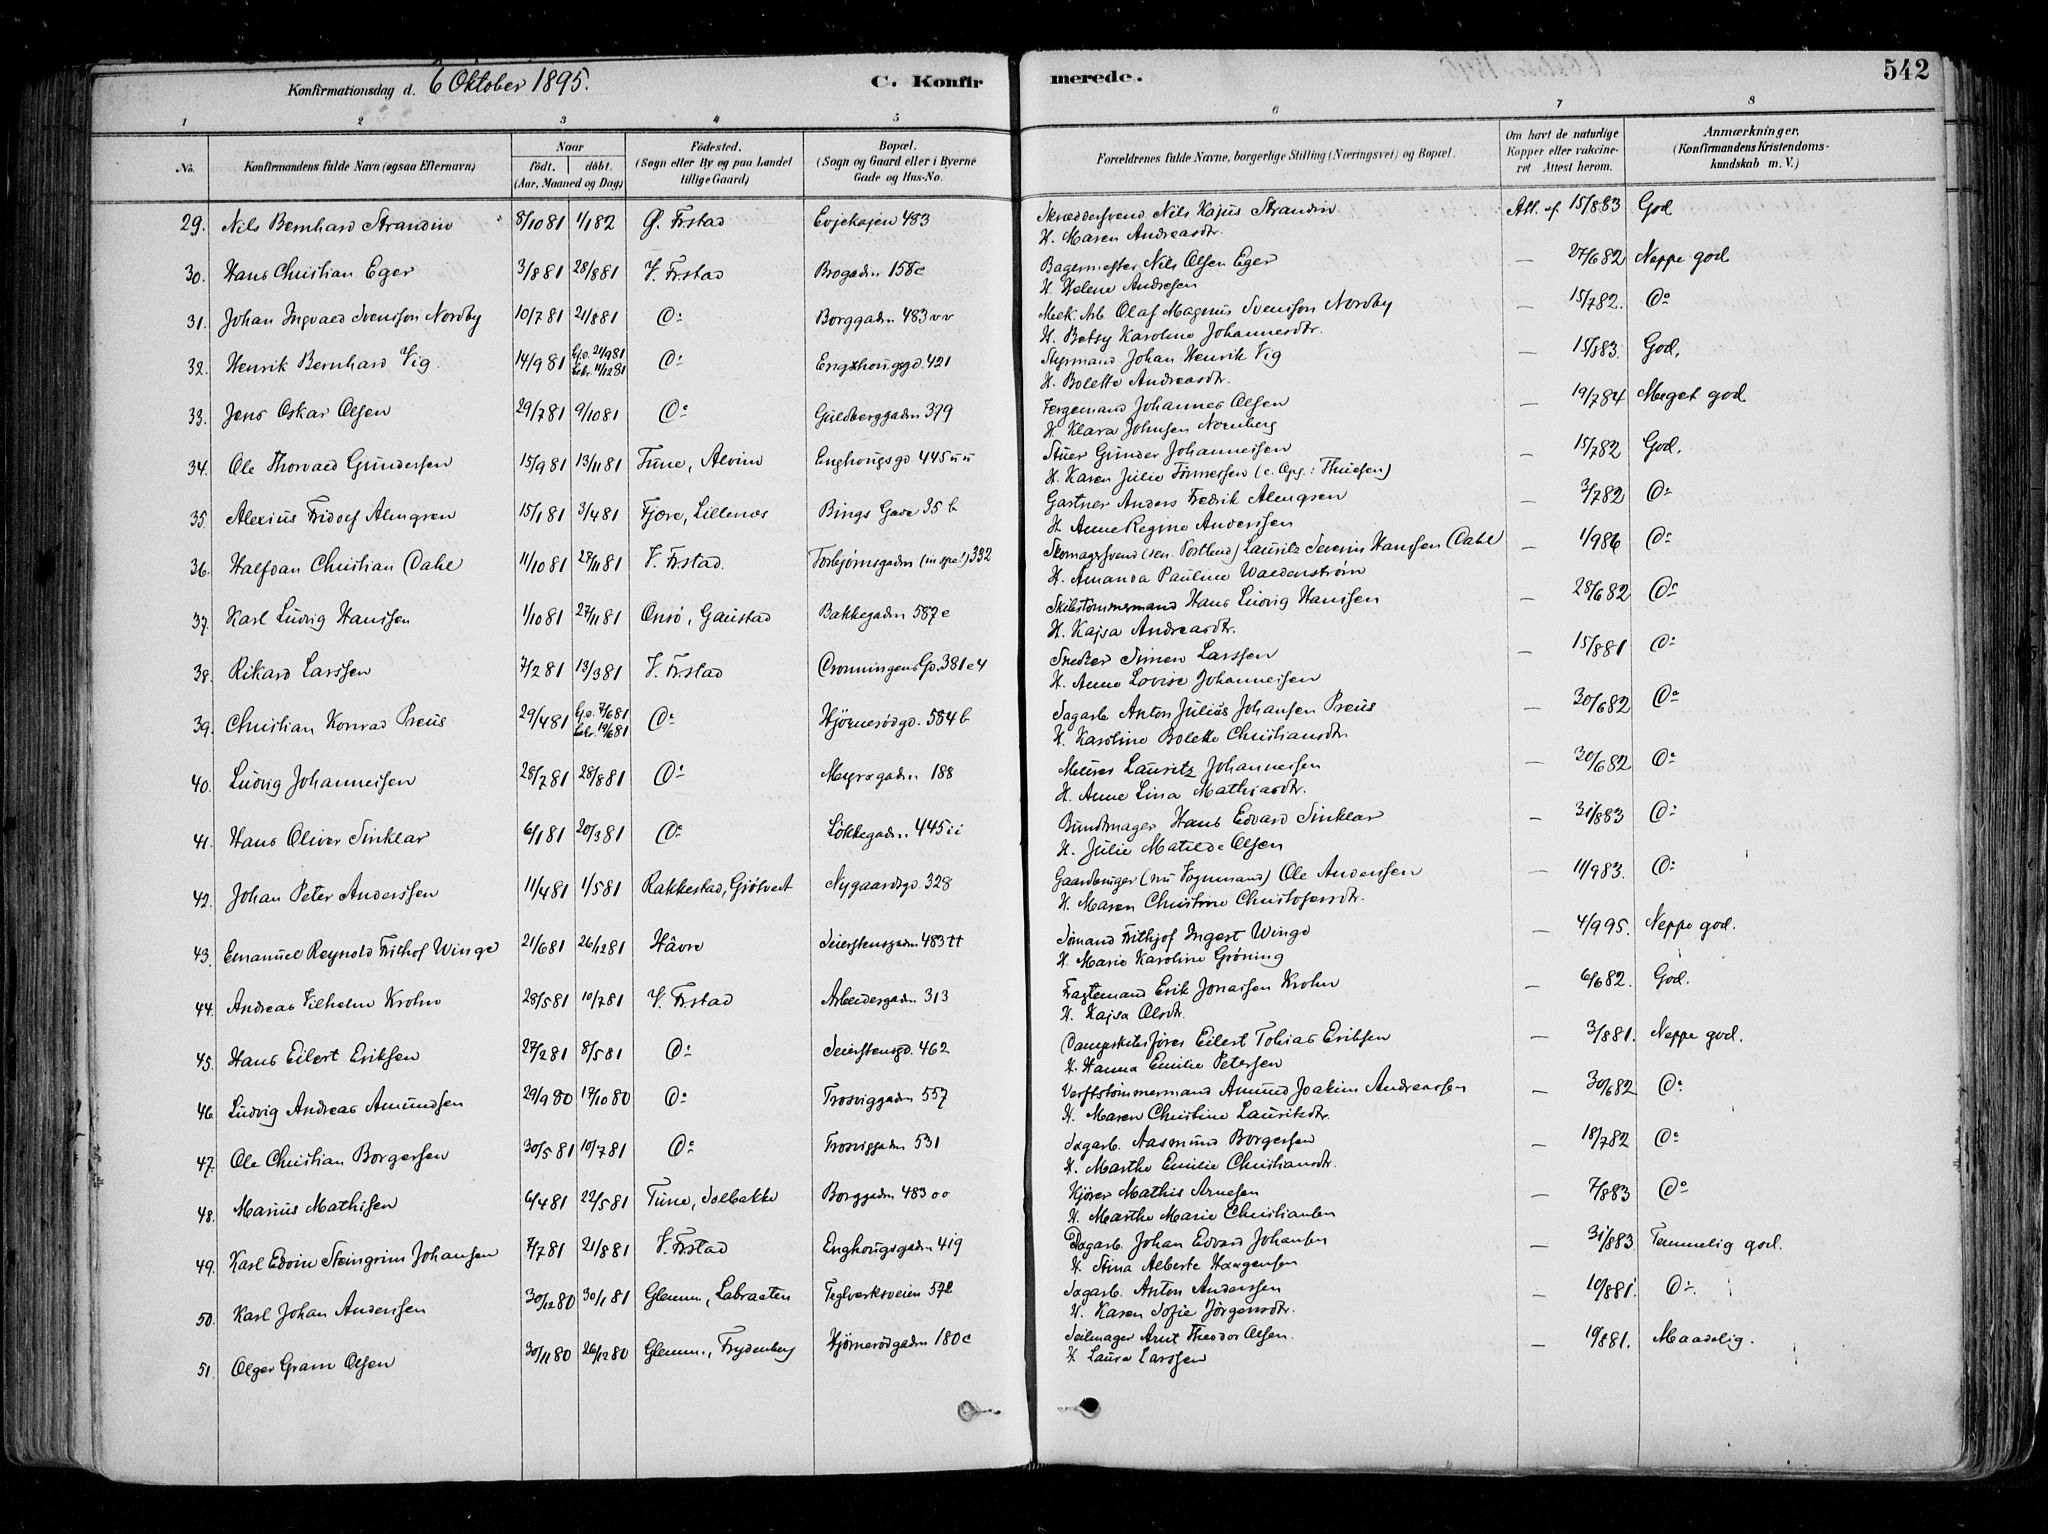 Konfirmationsdag d. 6 Oktober 1895.
C. Konfir
merede.
542
1 2 3 4 5 6 7 8
No. Konfirmandens fulde Navn (ogsaa Efternavn) Naar født. døbt. (Aar, Maaned og Dag) Fødested. (Sogn eller By og paa Landet tillige Gaard) Bopæl. (Sogn og Gaard eller i Byerne Gade og Hus-No. Forældrenes fulde Navne, borgerlige Stilling (Næringsvei) og Bopæl. Om havt de naturlige Kopper eller vakcineret Attest herom. Anmærkninger. (Konfirmandens Kristendomskundskab m. V.)
29. Nils Bernhard Strandin 8/10 81 1/1 82 Ø. Frstad Evjekajen 483 Skræddersvend Nils Kajus Strandin Att. af 15/8 83 God
H. Maren Andreasdtr.
30. Hans Christian Eger 3/8 81 28/8 81 V. Frstad Brogaden 158c Bagermester Nils Olsen Eger — 27/6 82 Neppe god
H. Helene Andresen
31. Johan Ingvald Svensson Nordby 10/7 81 21/8 81 Do Borggaden 483vv Mek. Arb Olaf Magnus Svensson Nordby — 15/7 82. Do
H. Betsy Karoline Johannesdtr.
32. Henrik Bernhard Vig. 14/9 81 hjd. 21/9 81 bekr. 11/12 81 Do Enghougsgd. 421 Styrmand Johan Henrik Vig — 15/8 83. God.
H. Bolette Andreasdtr.
33. Jens Oskar Olsen 29/7 81 9/10 81 Do Guldberggaden 379 Færgemand Johannes Olsen — 19/7 84 Meget god
H. Klara Johnsen Nornberg
34. Ole Thorvald Gundersen 15/9 81 13/11 81 Tune, Alvim Enghougsgd 445uu Stuer Gunder Johannessen — 15/7 82 God.
H. Karen Julie Finnessen (e. Opg.: Thuesen)
35. Alexius Fridolf Almgren 15/1 81 3/4 81 Fjære, Lillenæs Bings Gade 35 b Gartner Anders Fredrik Almgren — 3/7 82 Do
H. Anne Regine Anderssen
36. Halfdan Christian Dahl 11/10 81 27/11 81 V. Frstad. Torbjørnsgaden (in spe!) 332 Skomagersvend (sen. Postbud) Lauritz Severin Hanssen Dahl — 1/9 86 Do
H. Amanda Pauline Waldenstrøm
37. Karl Ludvig Hanssen 1/10 81 27/11 81 Onsø, Gaustad Bakkegaden 587e Skibstømmermand Hans Ludvig Hanssen — 28/6 82 Do
H. Kajsa Andreasdtr.
38. Rikard Larssen 7/2 81 13/3 81 V. Frstad Cronningens Gd. 381e4 Snedker Simen Larssen — 15/8 81 Do
H. Anne Lovise Johannessen
39. Christian Konrad Preus 29/4 81 hjd. 7/6 81 bekr. 19/6 81 Do Hjørnerødgd. 584b Sagarb. Anton Julius Johansen Preus — 30/6 82 Do
H. Karoline Bolette Christiansdtr
40. Ludvig Johannessen 28/7 81 28/8 81 Do Myragaden 188 Murer Lauritz Johannessen — 30/6 82 Do
H. Anne Lina Mathiasdtr.
41. Hans Oliver Sinklar 6/1 81 20/3 81 Do Løkkegaden 445ii Bundtmager Hans Edvard Sinklar — 31/8 83 Do
H. Julie Matilde Olsen
42. Johan Peter Anderssen 11/4 81 1/5 81 Rakkestad, Gjøtvedt Nygaardsgd. 328 Gaardbruger (nu Vognmand) Ole Anderssen — 11/9 83. Do
H. Maren Christine Christofersdtr.
43. Emanuel Reynold Frithof Winge 21/6 81 26/12 81 Hâvre Seierstensgaden 483tt Sømand Frithjof Ingert Winge — 4/9 95. Neppe god.
H. Marie Karoline Grøning
44. Andreas Vilhelm Krohn 28/5 81 10/7 81 V. Frstad Arbeidergaden 313 Fragtemand Erik Jonassen Krohn — 6/6 82. God.
H. Kajsa Olsdtr.
45. Hans Eilert Eriksen 27/2 81 8/5 81 Do Seierstensgd. 462 Dampskibsfører Eilert Tobias Eriksen — 3/8 81. Neppe god.
H. Hanna Emilie Petersen
46. Ludvig Andreas Amundsen 29/9 80 17/10 80 Do Trosviggaden 557 Verftstømmermand Amund Joakim Andreassen — 30/6 82 Do
H. Maren Christine Lauritzdtr.
47. Ole Christian Borgersen 30/5 81 10/7 81 Do Trosviggaden 531 Sagarb. Aasmund Borgersen — 18/7 82 Do
H. Marthe Emilie Christiansdtr.
48. Marius Mathisen 6/4 81 22/5 81 Tune, Solbakke Borggaden 483oo Kjører Mathis Arnesen — 7/8 83 Do
H. Marthe Marie Christiansen
49. Karl Edvin Steingrim Johansen 7/7 81 21/8 81 V. Frstad Enghougsgaden 419 Dagarb. Johan Edvard Johansen — 31/8 83 Temmelig god.
H. Stina Alberte Haagensen
50. Karl Johan Anderssen 30/12 80 30/1 81 Glemm., Labraaten Teglværksveien 572 Sagarb. Anton Anderssen — 10/8 81. Do.
H. Karen Sofie Jørgensdtr.
51. Olger Gram Olsen 30/11 80 26/12 80 Glemm., Frydenberg Hjørnerødgaden 180c Seilmager Arnt Theodor Olsen. — 19/8 81. Maadelig.
H. Laura Larssen